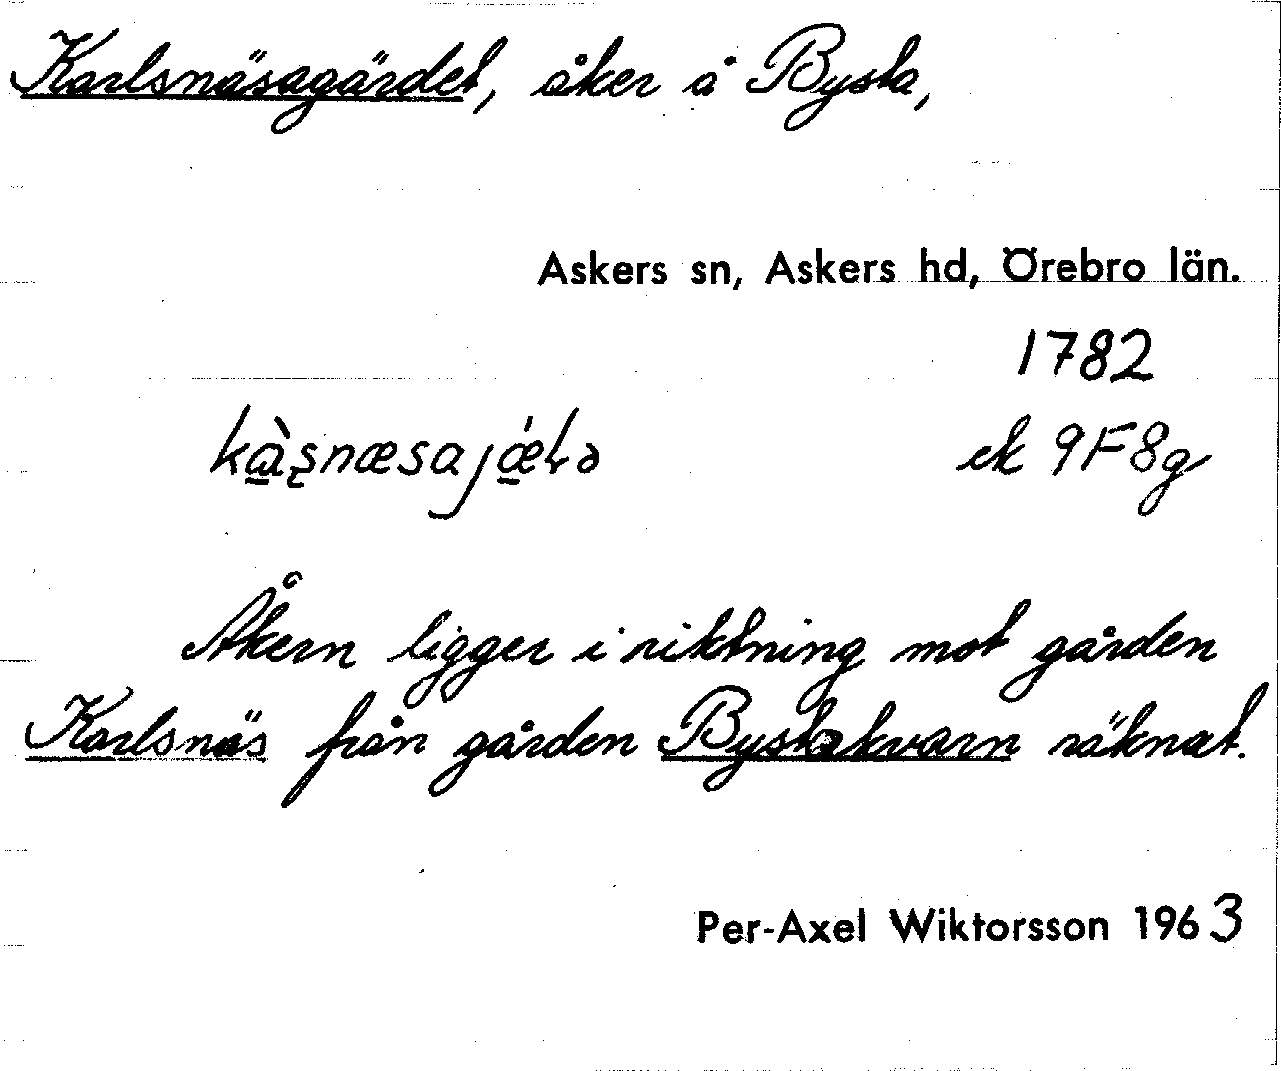 Karlsnäsagärdet, åker å Bysta,
Askers sn, Askers hd, Örebro län.
1782
kà̱s̨næsajǽ̱ʈə
ek 9F8g
Åkern ligger i riktning mot gården
Karlsnäs från gården Bystakvarn räknat.
Per-Axel Wiktorsson 1963